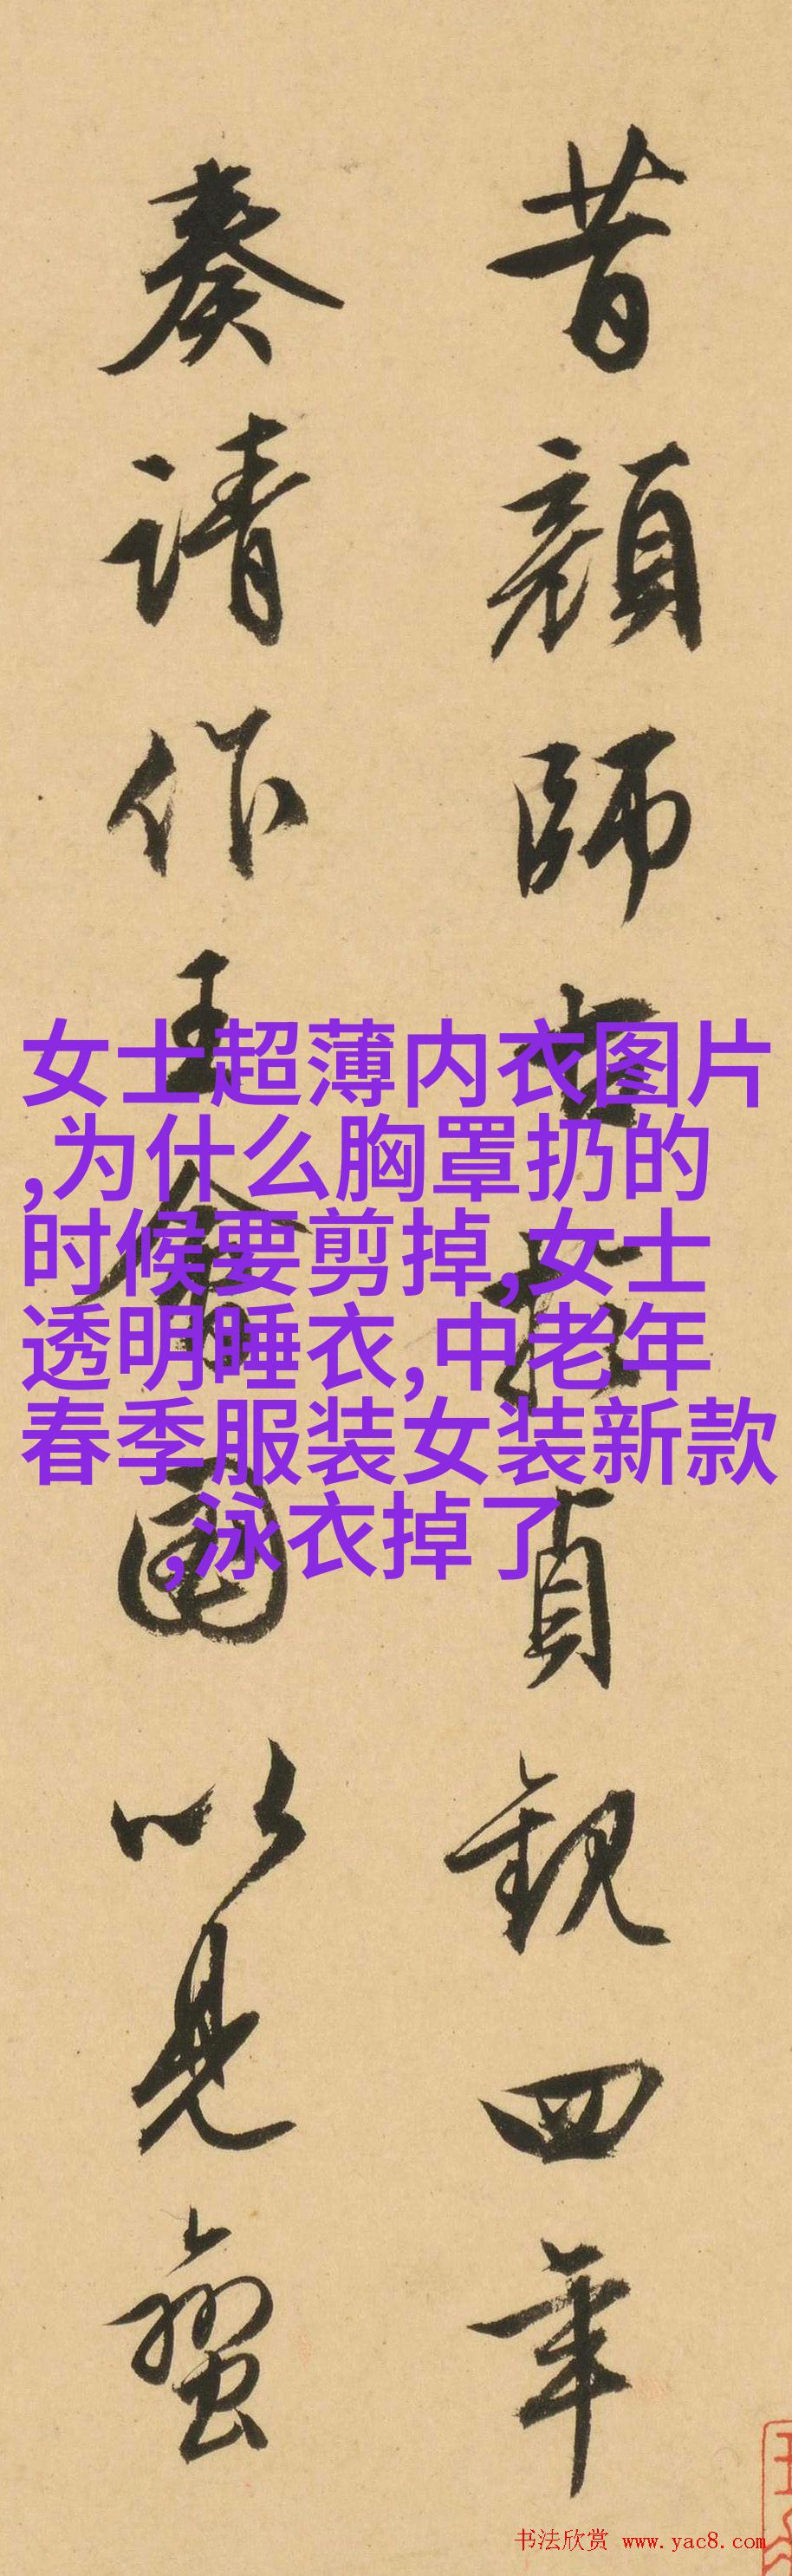 昔顏師古於貞觀四年
奏請作王會圖以見蠻
女士超薄内衣图片
,为什么胸罩扔的
时候要剪掉,女士
透明睡衣,中老年
春季服装女装新款
,泳衣掉了
书法欣赏 www.yac8.com